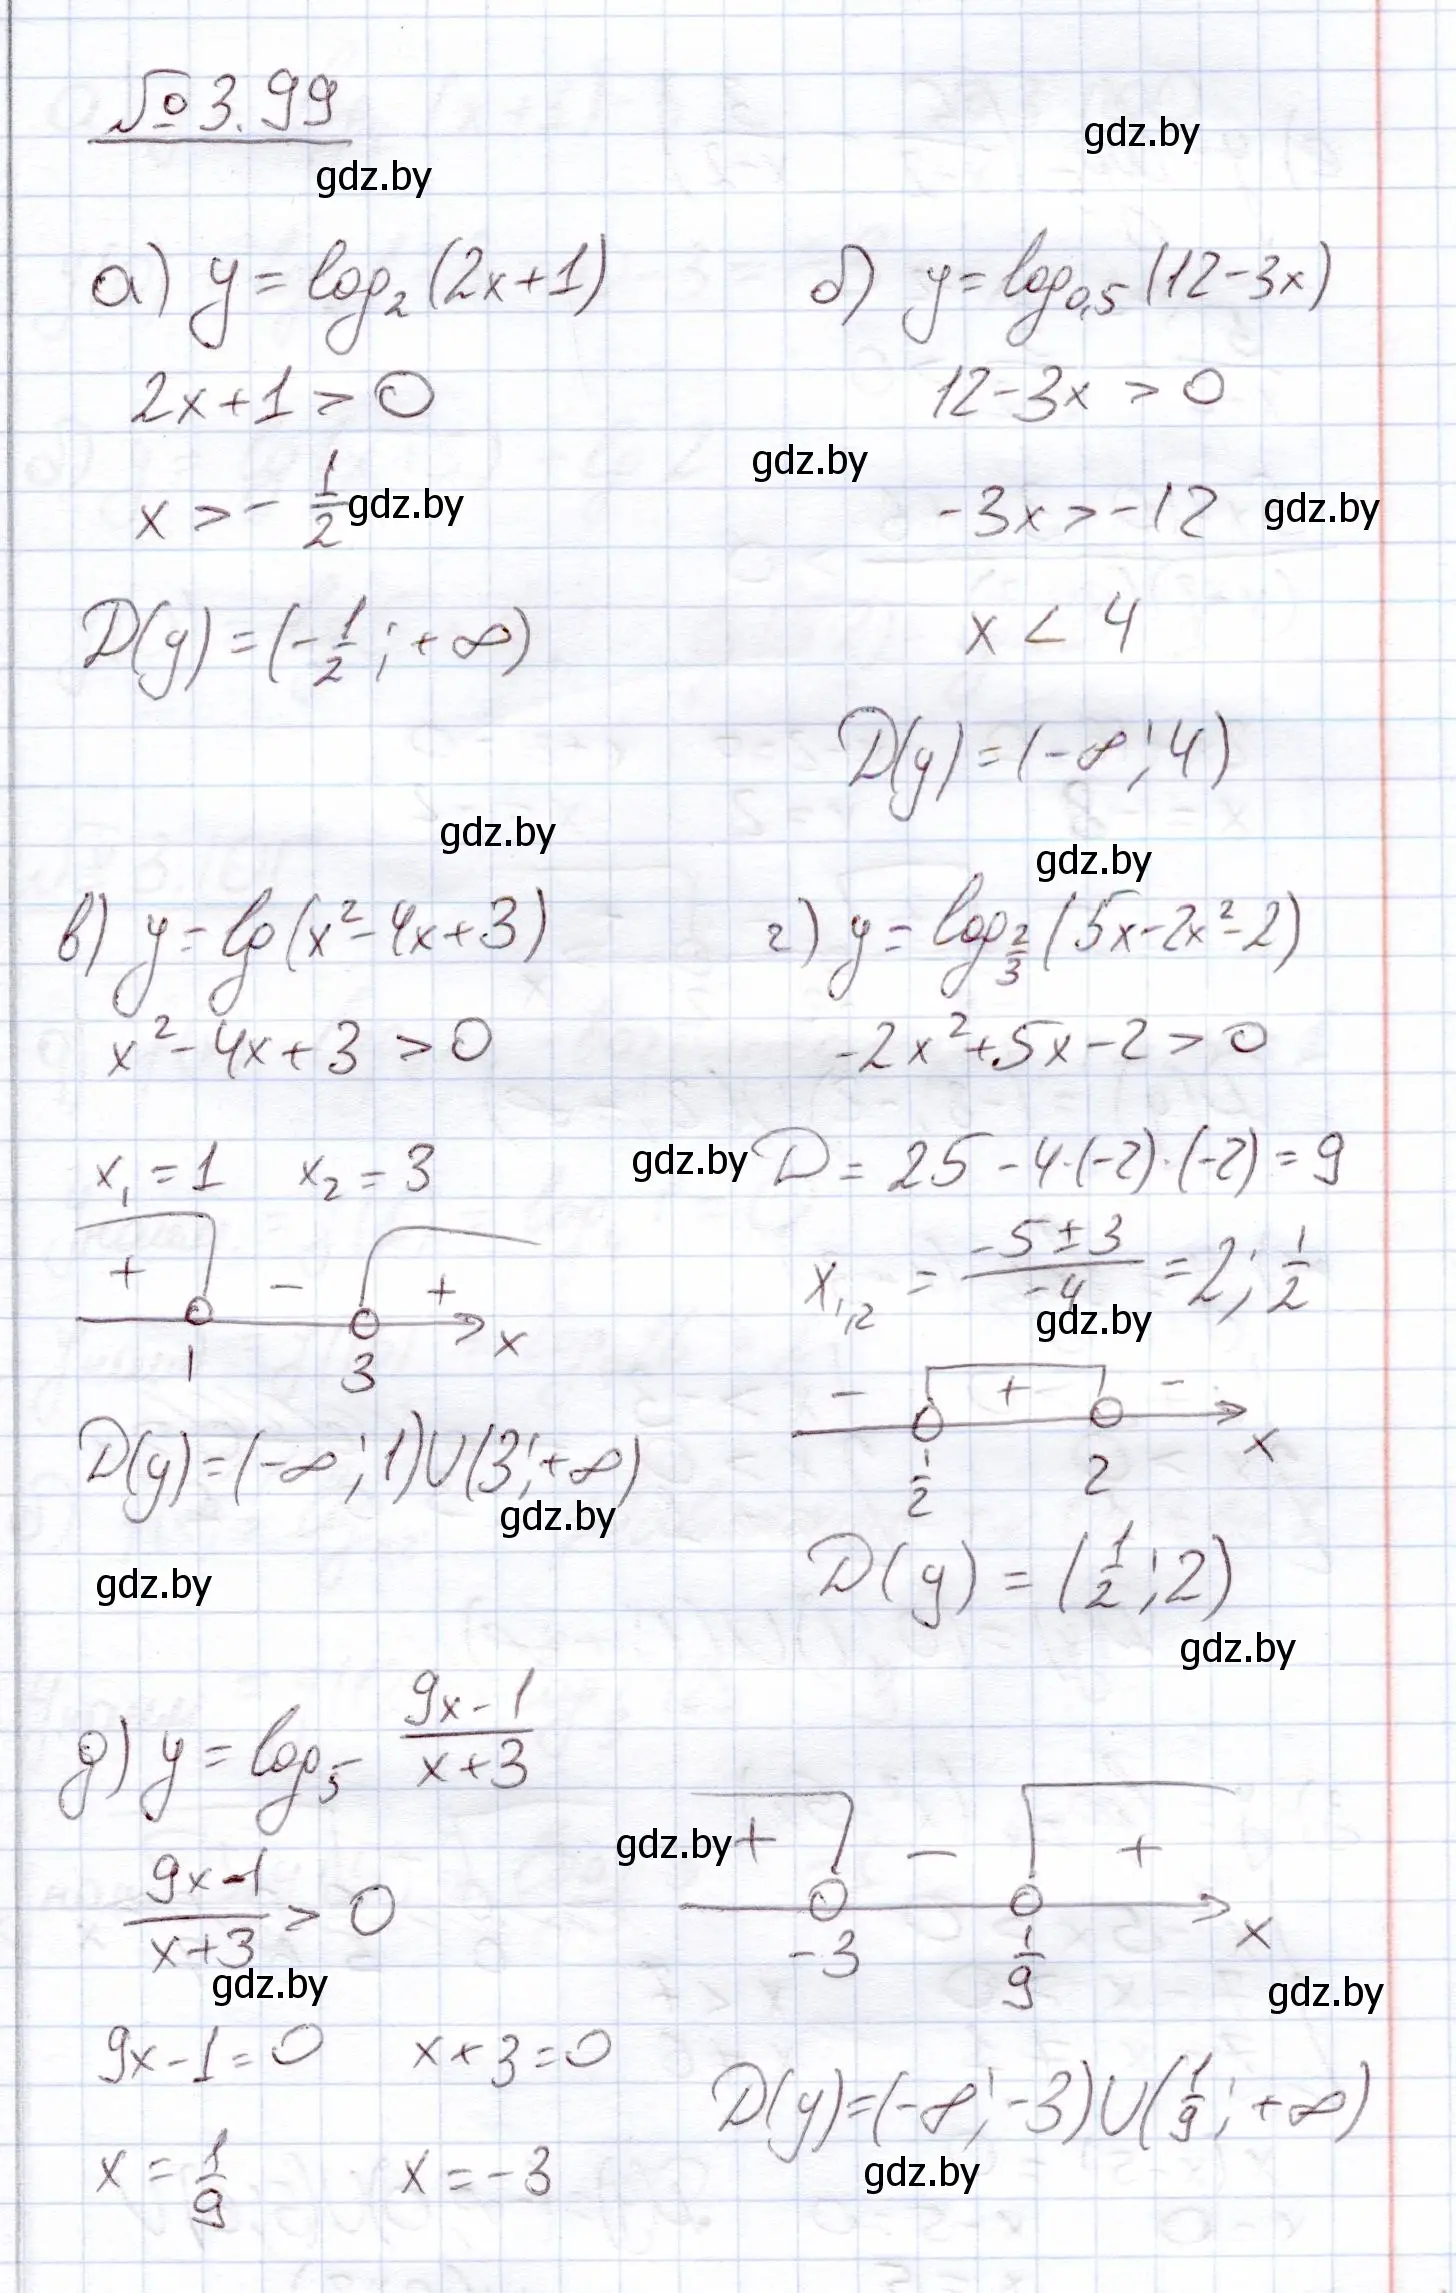 № 3.99
gdz.by
gdz.by
а) y = log₂(2x+1)
2x+1 > 0
x > - 1/2
gdz.by
D(y) = (-1/2; +∞)
б) y = log₀,₅(12-3x)
12-3x > 0
gdz.by
-3x > -12
gdz.by
x < 4
D(y) = (-∞; 4)
gdz.by
gdz.by
в) y = lg(x²-4x+3)
x²-4x+3 > 0
x₁ = 1 x₂ = 3
+ - +
1 3 x
D(y) = (-∞; 1)∪(3; +∞)
gdz.by
gdz.by
г) y = log_2/3(5x-2x²-2)
-2x²+5x-2 > 0
gdz.by
D = 25-4·(-2)·(-2) = 9
x₁,₂ = (-5±3)/-4 = 2; 1/2
gdz.by
- + -
1/2 2 x
D(y) = (1/2; 2)
gdz.by
д) y = log₅ (9x-1)/(x+3)
(9x-1)/(x+3) > 0
gdz.by
9x-1=0 x+3=0
x = 1/9 x = -3
gdz.by
+ - +
-3 1/9 x
gdz.by
D(y) = (-∞; -3)∪(1/9; +∞)
gdz.by